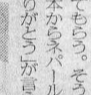 てもらう。そう
本からネパール
りがとう」が冒